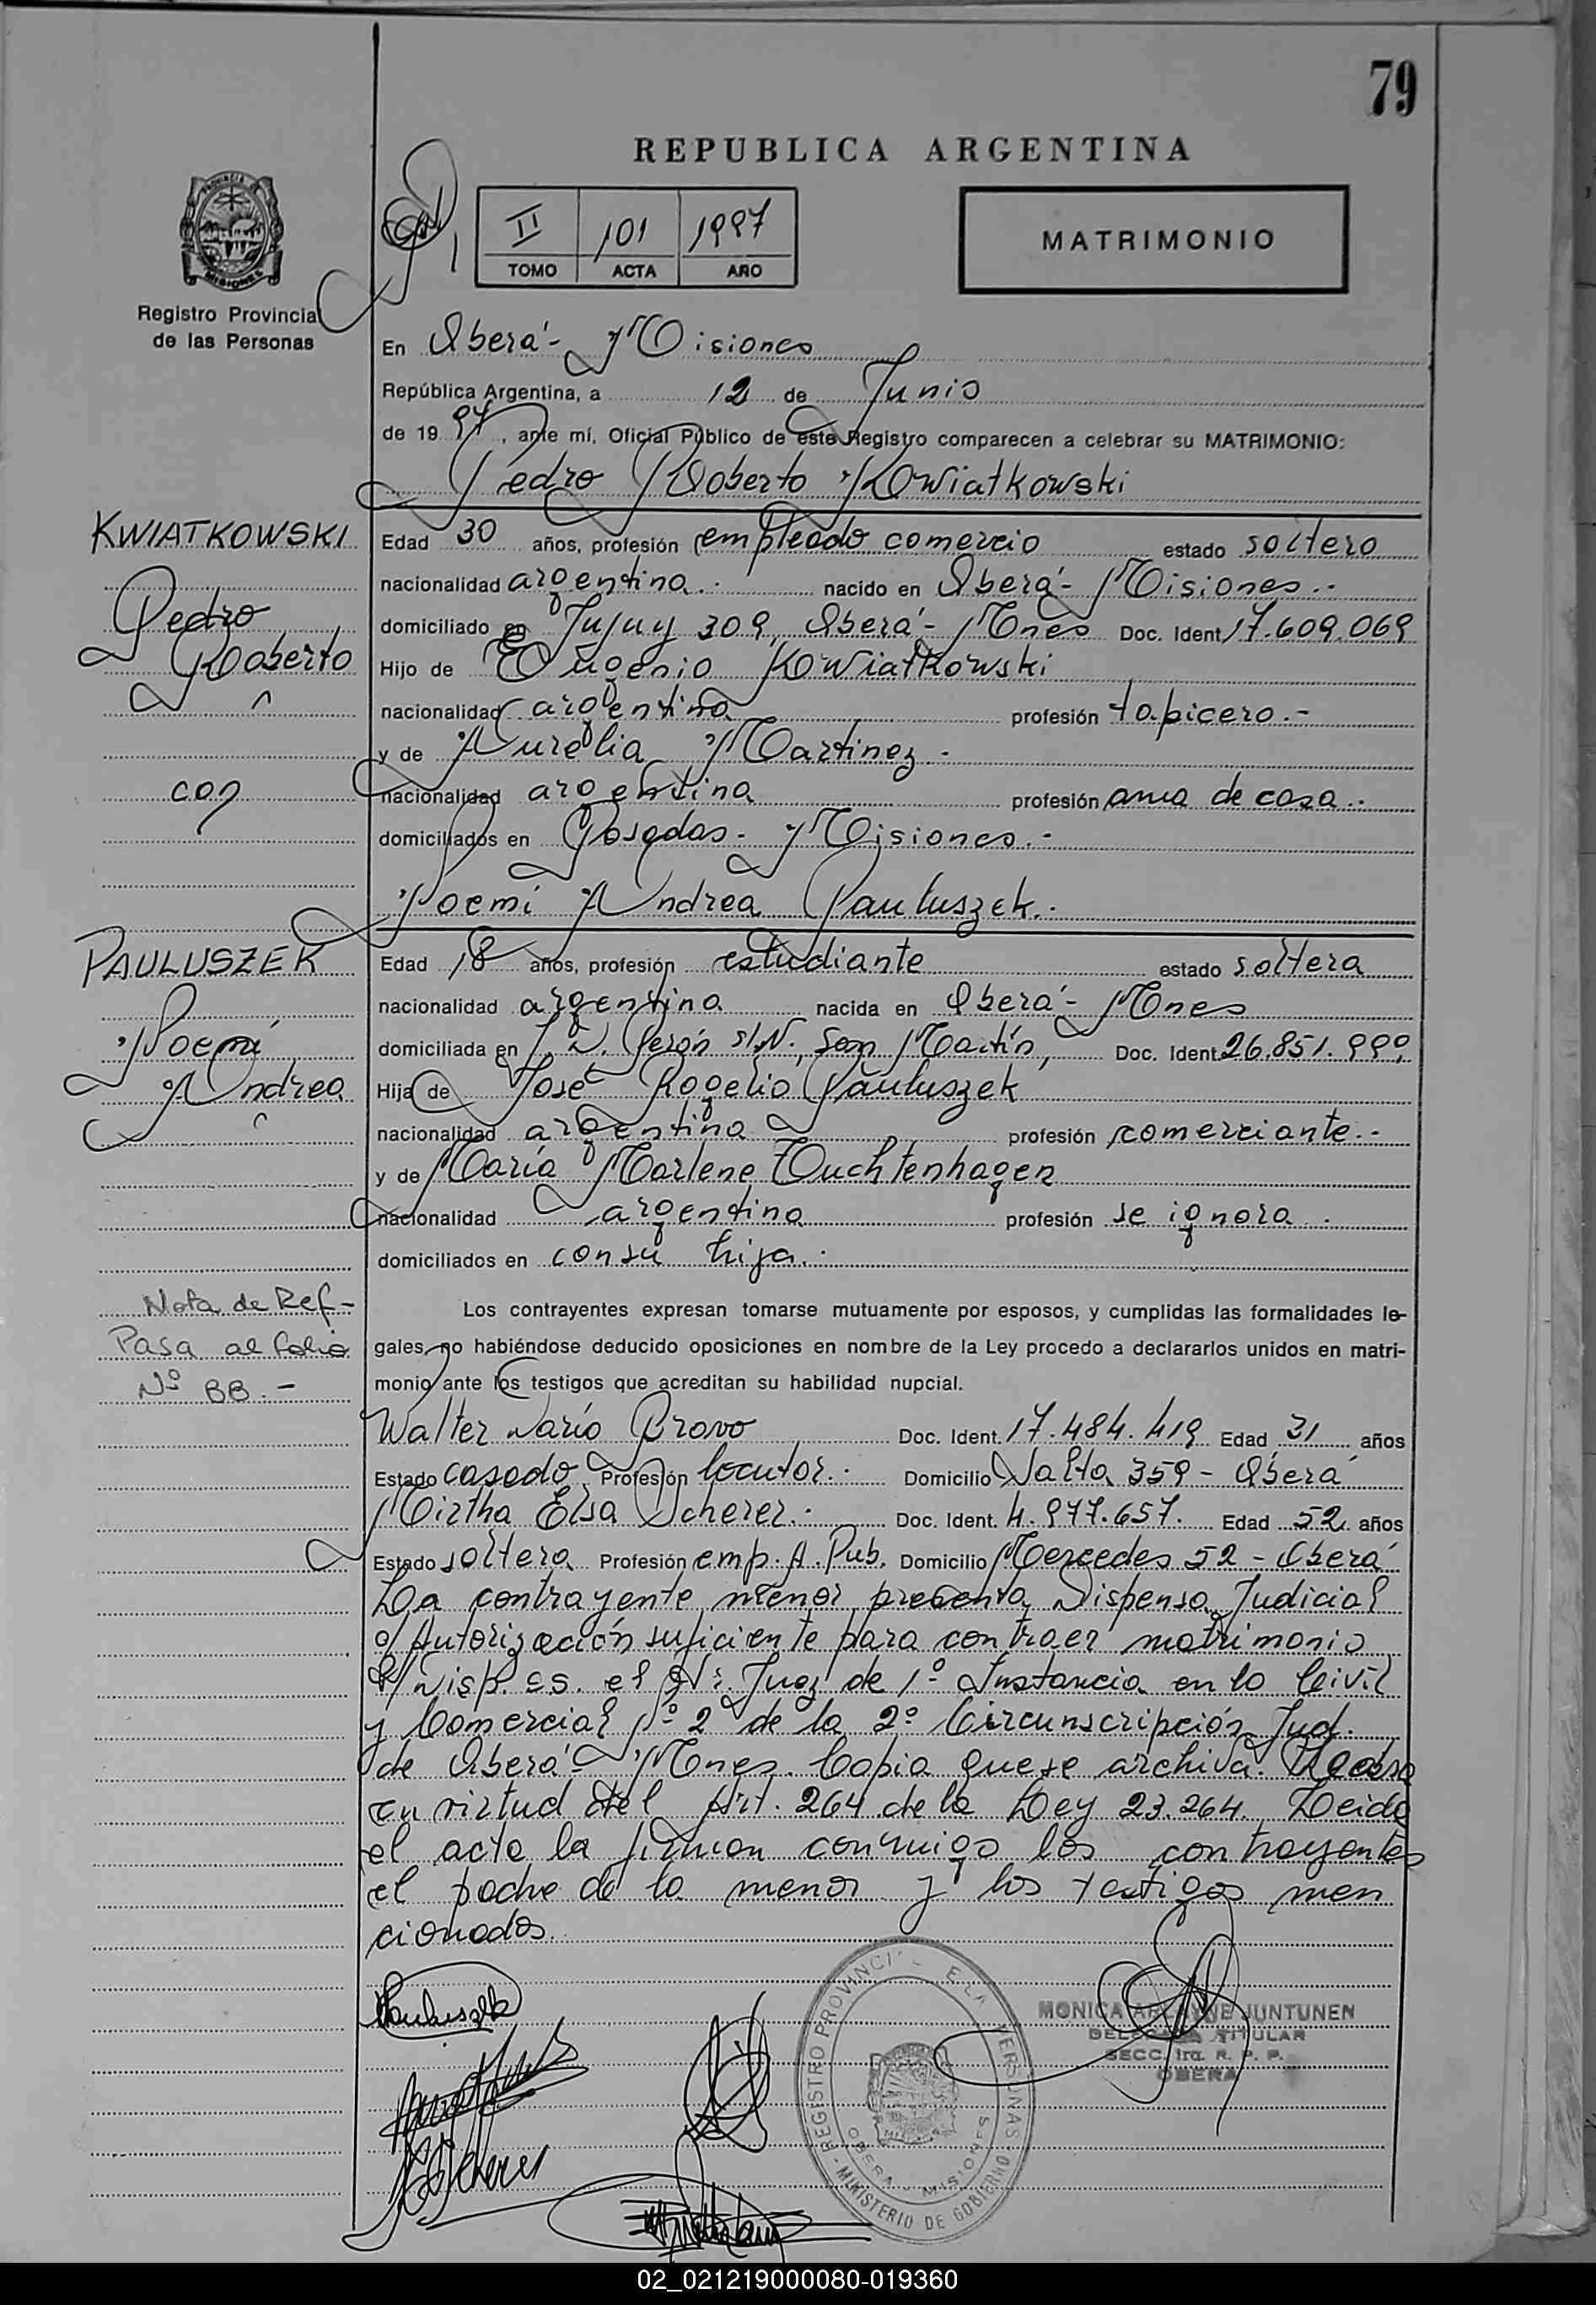 79
REPUBLICA ARGENTINA
PROVINCIA DE MISIONES
Registro Provincial
de las Personas
II 101 1997
TOMO ACTA AÑO
MATRIMONIO
En Oberá - Misiones
República Argentina, a 12 de Junio
de 19 97, ante mí, Oficial Público de este Registro comparecen a celebrar su MATRIMONIO:
Pedro Roberto Kwiatkowski
KWIATKOWSKI
Pedro
Roberto
con
Edad 30 años, profesión empleado comercio estado soltero
nacionalidad argentina.- nacido en Oberá - Misiones.-
domiciliado en Jujuy 309, Oberá - Mnes Doc. Ident. 17.609.069
Hijo de Eugenio Kwiatkowski
nacionalidad argentina profesión tapicero.-
y de Aurelia Martinez.-
nacionalidad argentina profesión ama de casa.-
domiciliados en Posadas - Misiones.-
Noemí Andrea Pauluszek.-
PAULUSZEK
Noemí
Andrea
Edad 18 años, profesión estudiante estado soltera
nacionalidad argentina nacida en Oberá - Mnes
domiciliada en J. D. Perón s/N. San Martín, Doc. Ident. 26.851.999
Hija de José Rogelio Pauluszek
nacionalidad argentina profesión comerciante.-
y de María Marlene Wuchtenhagen
nacionalidad argentina profesión se ignora.
domiciliados en con su hija.-
Nota de Ref-
Pasa al folio
Nº 88.-
Los contrayentes expresan tomarse mutuamente por esposos, y cumplidas las formalidades le-
gales, no habiéndose deducido oposiciones en nombre de la Ley procedo a declararlos unidos en matri-
monio ante los testigos que acreditan su habilidad nupcial.
Walter Darío Bravo Doc. Ident. 17.484.419 Edad 31 años
Estado casado Profesión locutor.- Domicilio Salta 359 - Oberá
Mirtha Elsa Scherer.- Doc. Ident. 4.977.657. Edad 52 años
Estado soltera Profesión emp. A. Pub. Domicilio Mercedes 52 - Oberá
La contrayente menor presenta Dispensa Judicial
o/Autorización suficiente para contraer matrimonio
Disp. es. el Sr. Juez de 1º Instancia en lo Civil
y Comercial Nº 2 de la 2º Circunscripción Jud.
de Oberá - Mnes. Copia que se archiva.
en virtud del Art. 264 de la Ley 23.264. Leida
el acta la firman conmigo los contrayentes
el padre de la menor y los testigos men
cionados.
Pauluszek
REGISTRO PROVINCIAL DE LAS PERSONAS
OBERA - MISIONES
MINISTERIO DE GOBIERNO
MONICA ARLAYNE JUNTUNEN
DELEGADA TITULAR
SECC. 1ra. R. P. P.
OBERA
02_021219000080-019360